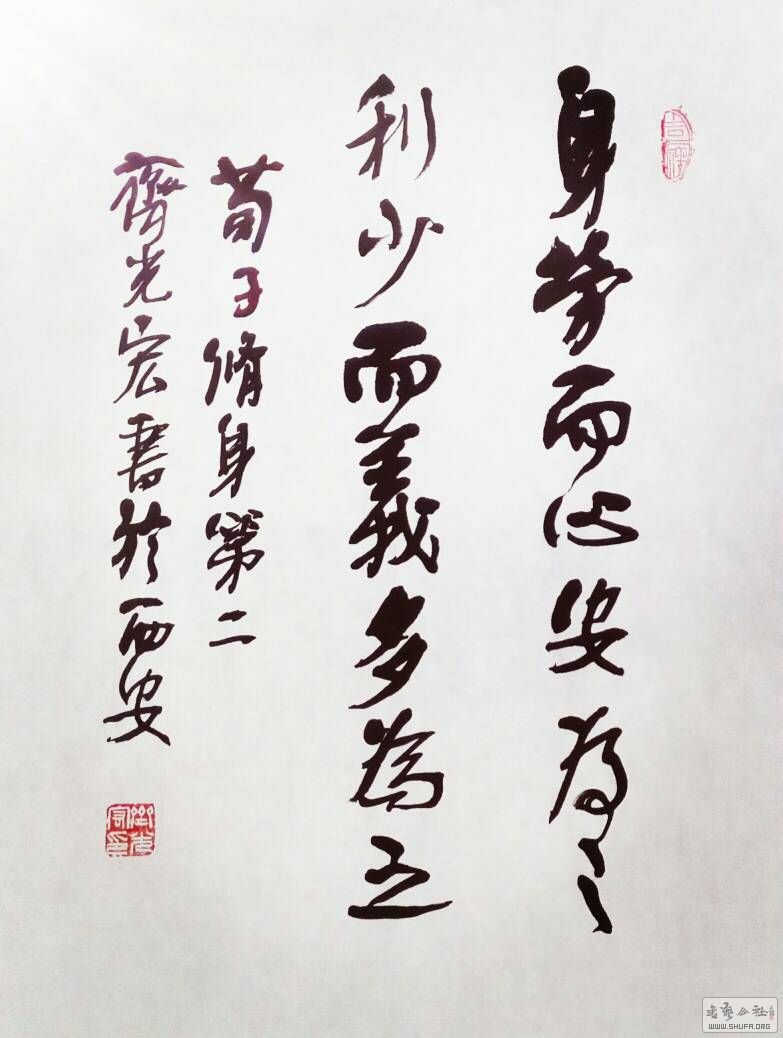 身勞而心安為之
利少而義多為之
荀子脩身第二
齊光宏書於西安
書藝公社
WWW.SHUFA.ORG